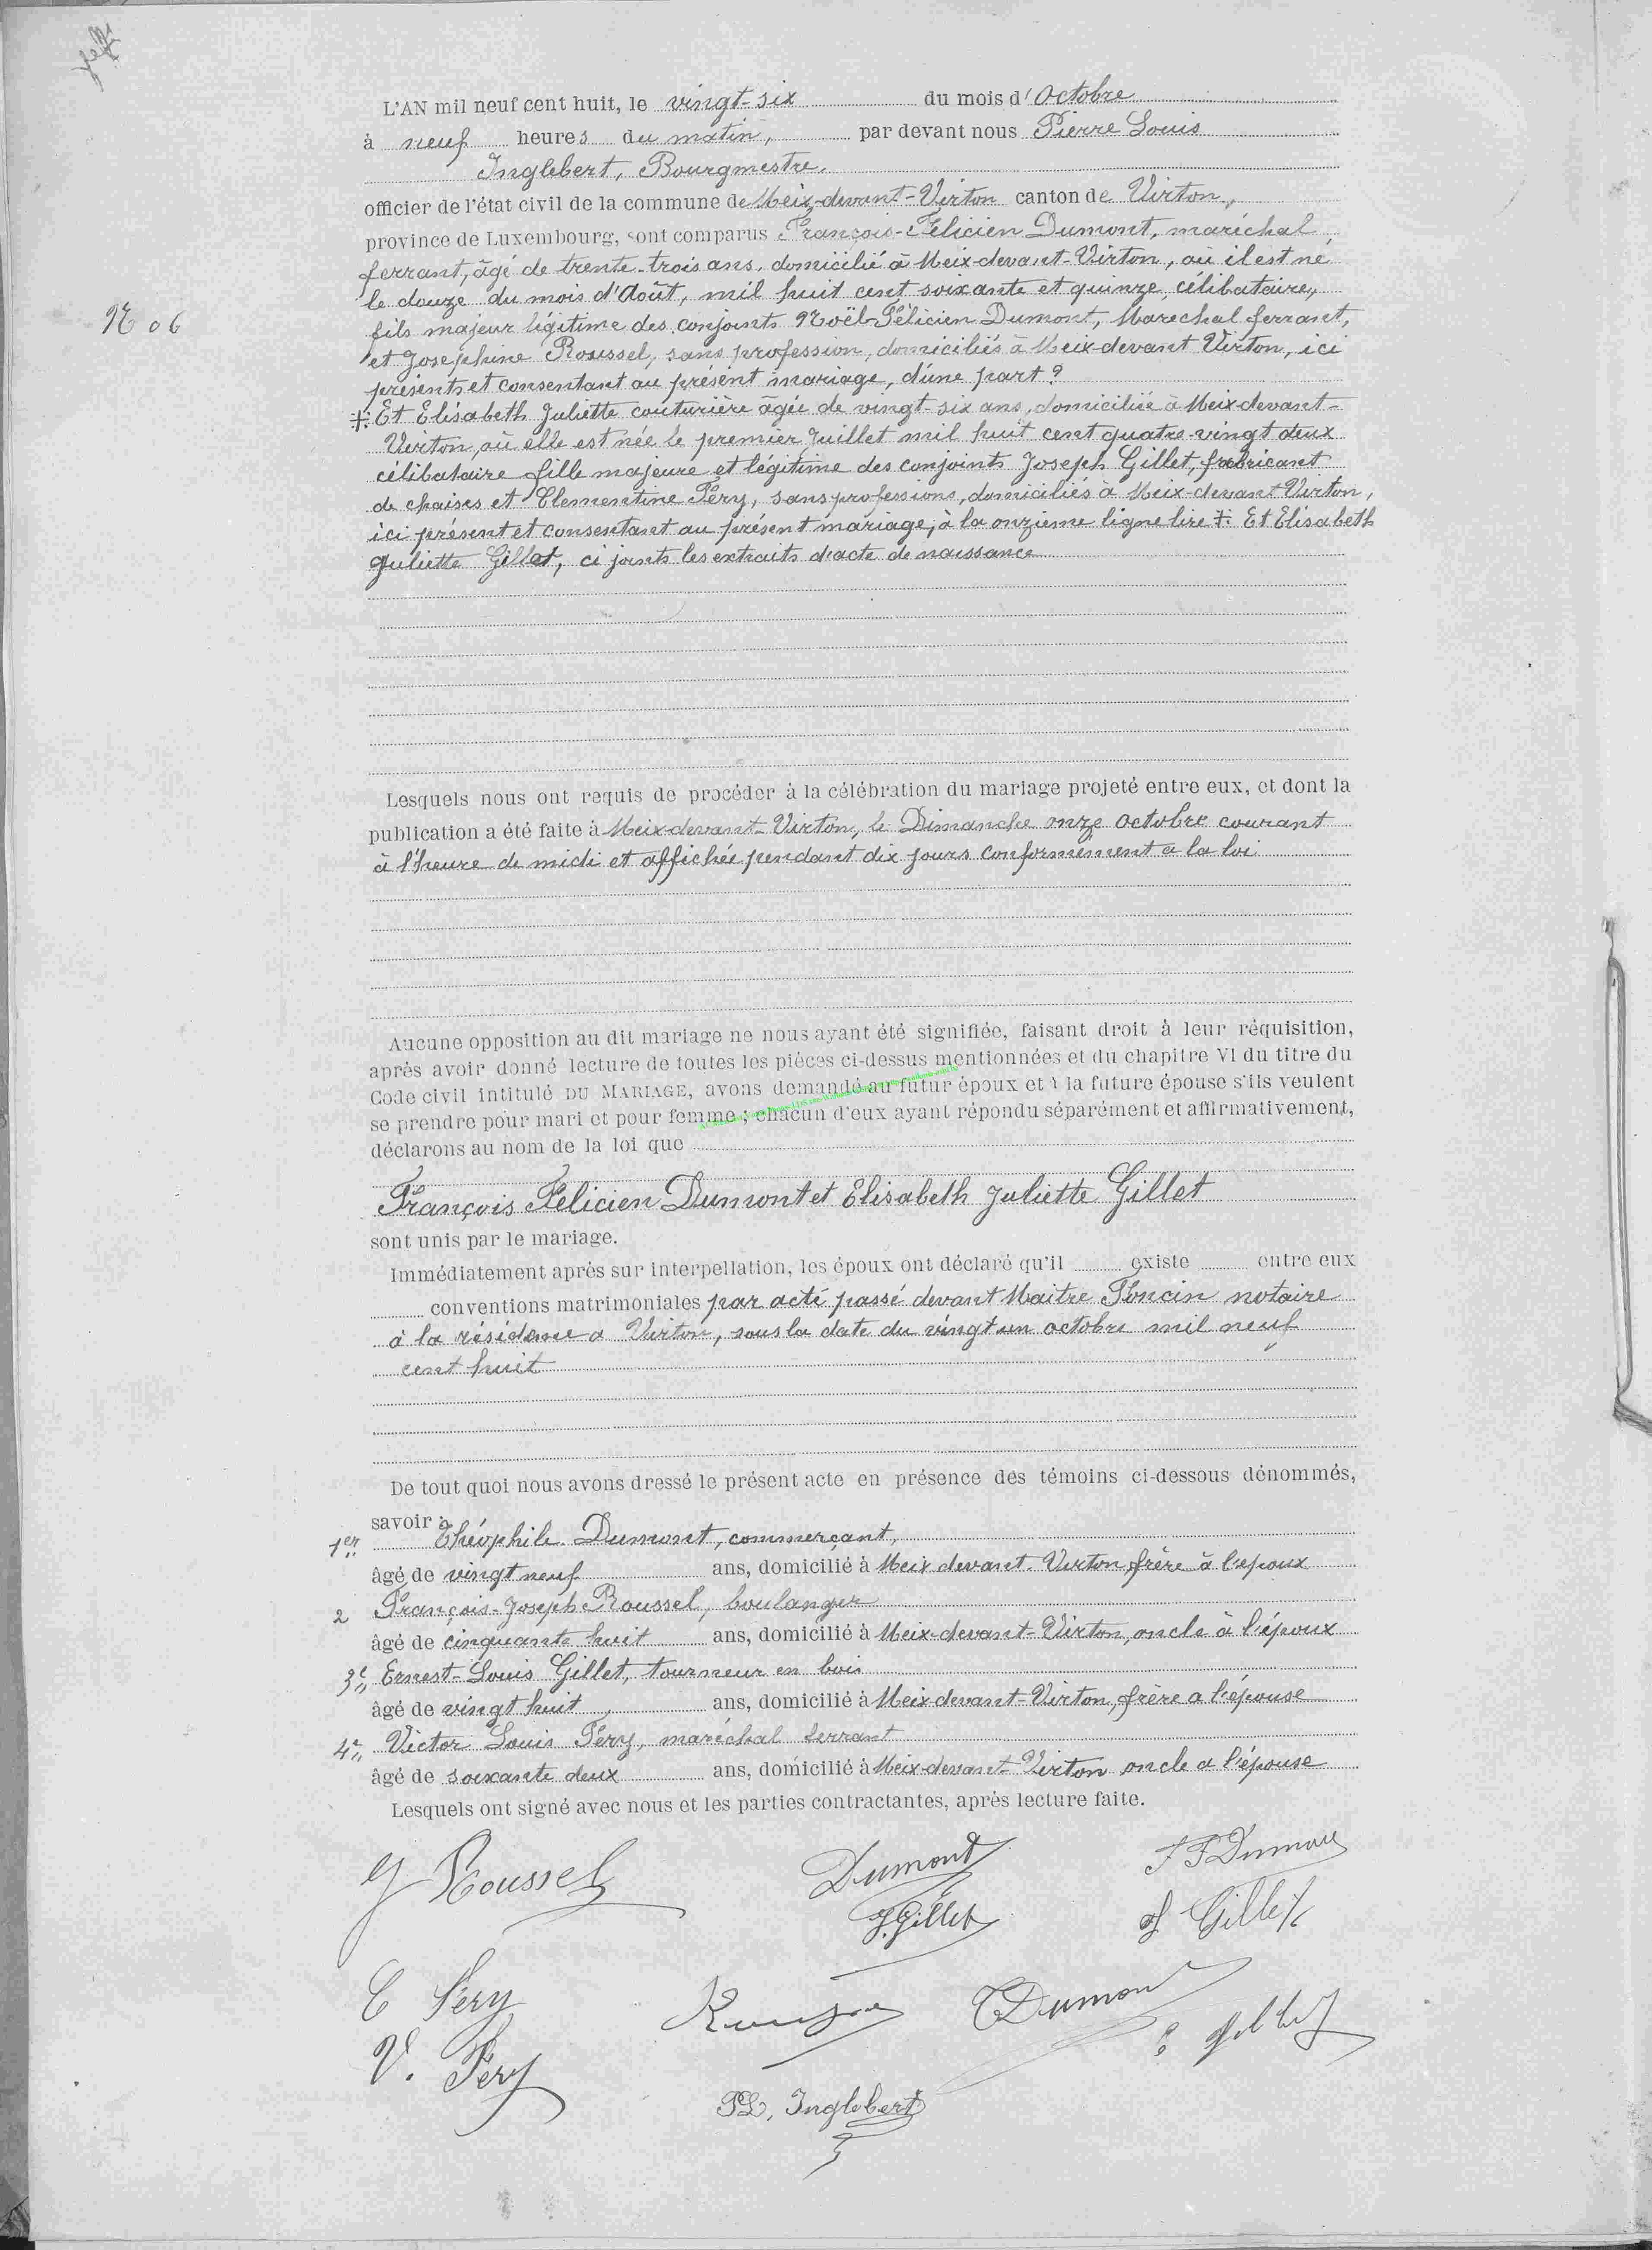 L'AN mil neuf cent huit, le vingt-six du mois d'Octobre
à neuf heures du matin, par devant nous Pierre Louis
Inglebert, Bourgmestre.
officier de l'état civil de la commune de Meix-devant-Virton canton de Virton,
province de Luxembourg, sont comparus François-Félicien Dumont, maréchal
ferrant, âgé de trente-trois ans, domicilié à Meix-devant-Virton, où il est né
N° 6
le douze du mois d'Août, mil huit cent soixante et quinze, célibataire,
fils majeur légitime des conjoints Noël-Félicien Dumont, Marechal ferrant,
et Josephine Roussel, sans profession, domiciliés à Meix-devant Virton, ici
présents et consentant au présent mariage, d'une part ?
‡: Et Elisabeth Juliette couturière âgée de vingt-six ans, domiciliée à Meix-devant-
Virton, où elle est née le premier Juillet mil huit cent quatre-vingt deux
célibataire fille majeure et légitime des conjoints Joseph Gillet, fabricant
de chaises et Clementine Féry, sans professions, domiciliés à Meix-devant Virton,
ici présent et consentant au présent mariage, à la onzième ligne lire ‡: Et Elisabeth
Juliette Gillet, ci joints les extraits d'acte de naissance
Lesquels nous ont requis de procéder à la célébration du mariage projeté entre eux, et dont la
publication a été faite à Meix-devant-Virton, le Dimanche onze octobre courant
à l'heure de midi et affichée pendant dix jours conformément a la loi
Aucune opposition au dit mariage ne nous ayant été signifiée, faisant droit à leur réquisition,
après avoir donné lecture de toutes les pièces ci-dessus mentionnées et du chapitre VI du titre du
Code civil intitulé DU MARIAGE, avons demandé au futur époux et à la future épouse s'ils veulent
se prendre pour mari et pour femme ; chacun d'eux ayant répondu séparément et affirmativement,
déclarons au nom de la loi que
François Félicien Dumont et Elisabeth Juliette Gillet
sont unis par le mariage.
Immédiatement après sur interpellation, les époux ont déclaré qu'il existe entre eux
conventions matrimoniales par acte passé devant Maitre Poncin notaire
à la résidence a Virton, sous la date du vingt un octobre mil neuf
cent huit
De tout quoi nous avons dressé le présent acte en présence des témoins ci-dessous dénommés,
savoir :
1er Théophile Dumont, commerçant,
âgé de vingt neuf ans, domicilié à Meix devant-Virton, frère à l'époux
2 François-Joseph Roussel, boulanger
âgé de cinquante huit ans, domicilié à Meix-devant-Virton, oncle à l'époux
3e Ernest-Louis Gillet, tourneur en bois
âgé de vingt huit ans, domicilié à Meix-devant-Virton, frère a l'épouse
4e Victor Louis Féry, maréchal ferrant
âgé de soixante deux ans, domicilié à Meix-devant-Virton oncle a l'épouse
Lesquels ont signé avec nous et les parties contractantes, après lecture faite.
J Roussel Dumont F F Dumont
J. Gillet J Gillet
C Féry T Dumont
V. Féry
PL, Inglebert